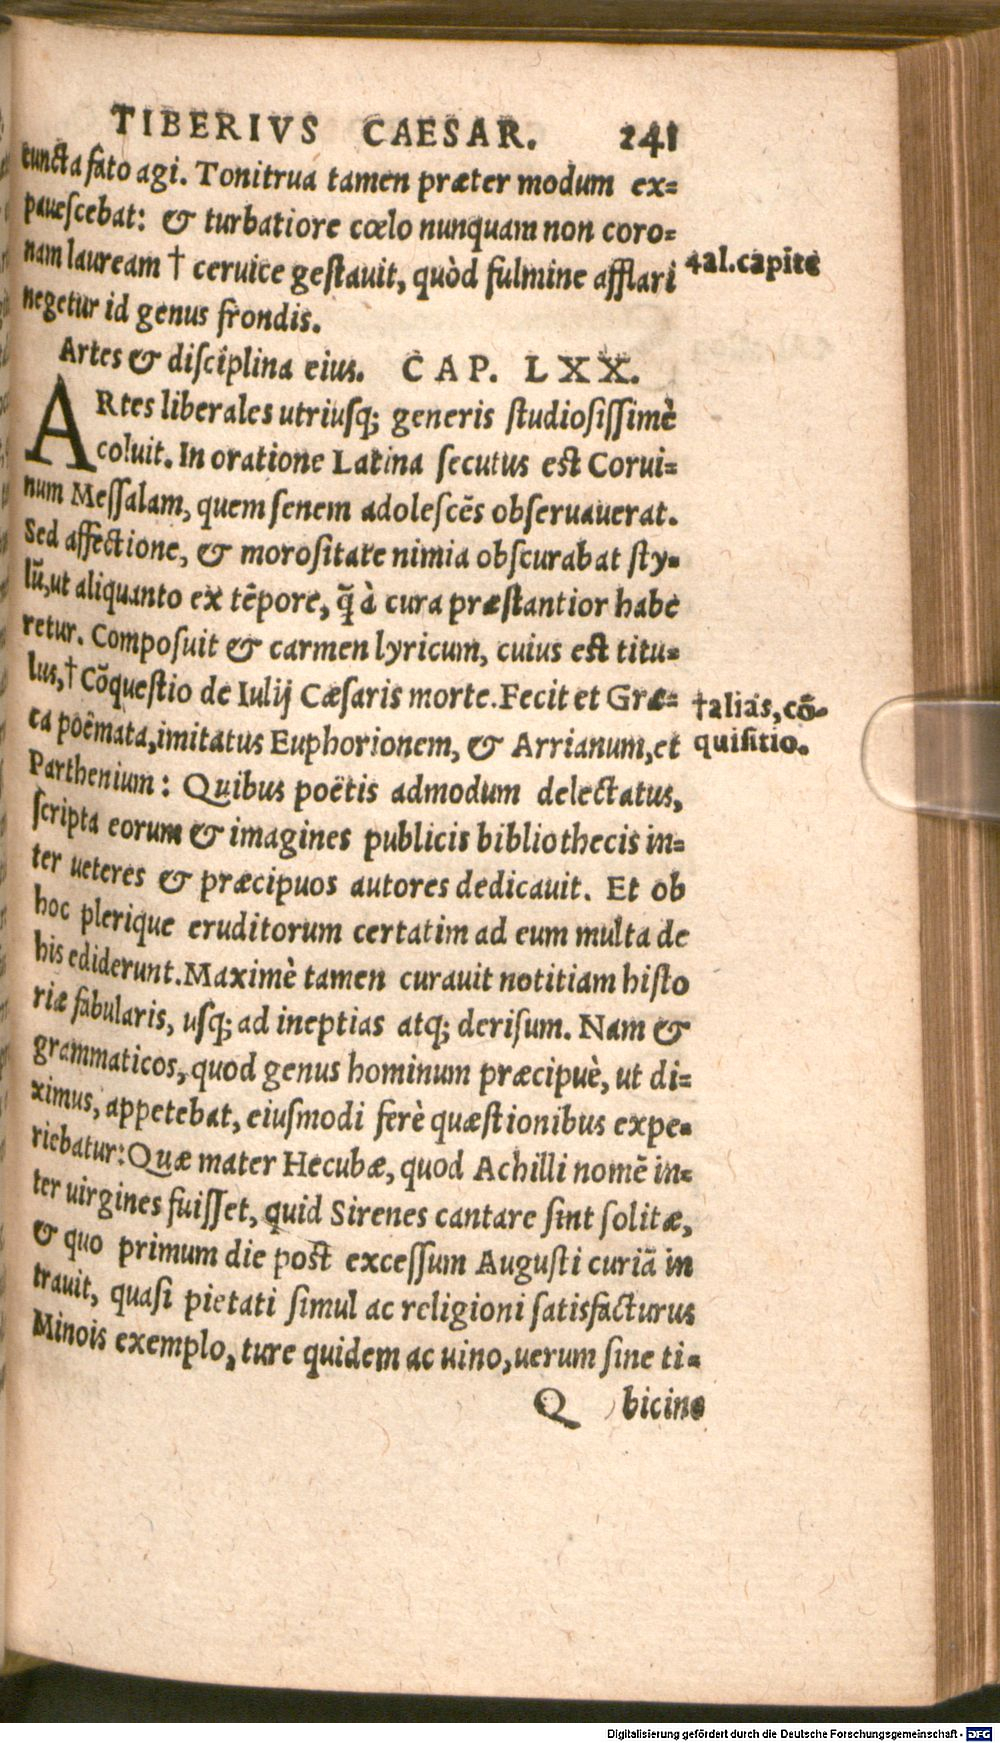 TIBERIVS CAESAR. 241
cuncta fato agi. Tonitrua tamen præter modum ex=
pauescebat: & turbatiore cœlo nunquam non coro=
nam lauream † ceruice gestauit, quòd fulmine afflari
4al.capite
negetur id genus frondis.
Artes & disciplina eius. CAP. LXX.
ARtes liberales utriusq; generis studiosissimè
coluit. In oratione Latina secutus est Corui=
num Messalam, quem senem adolescēs obseruauerat.
Sed affectione, & morositate nimia obscurabat sty=
lū, ut aliquanto ex tēpore, q̃ à cura præstantior habe
retur. Composuit & carmen lyricum, cuius est titu=
lus, † Cōquestio de Iulij Cæsaris morte. Fecit et Græ=
†aliàs, cō=
ca poëmata, imitatus Euphorionem, & Arrianum, et
quisitio.
Parthenium: Quibus poëtis admodum delectatus,
scripta eorum & imagines publicis bibliothecis in=
ter ueteres & præcipuos autores dedicauit. Et ob
hoc plerique eruditorum certatim ad eum multa de
his ediderunt. Maximè tamen curauit notitiam histo
riæ fabularis, usq; ad ineptias atq; derisum. Nam &
grammaticos, quod genus hominum præcipuè, ut di=
ximus, appetebat, eiusmodi ferè quæstionibus expe=
riebatur: Quæ mater Hecubæ, quod Achilli nomē in=
ter uirgines fuisset, quid Sirenes cantare sint solitæ,
& quo primum die post excessum Augusti curiā in
trauit, quasi pietati simul ac religioni satisfacturus
Minois exemplo, ture quidem ac uino, uerum sine ti=
Q bicine
Digitalisierung gefördert durch die Deutsche Forschungsgemeinschaft - DFG